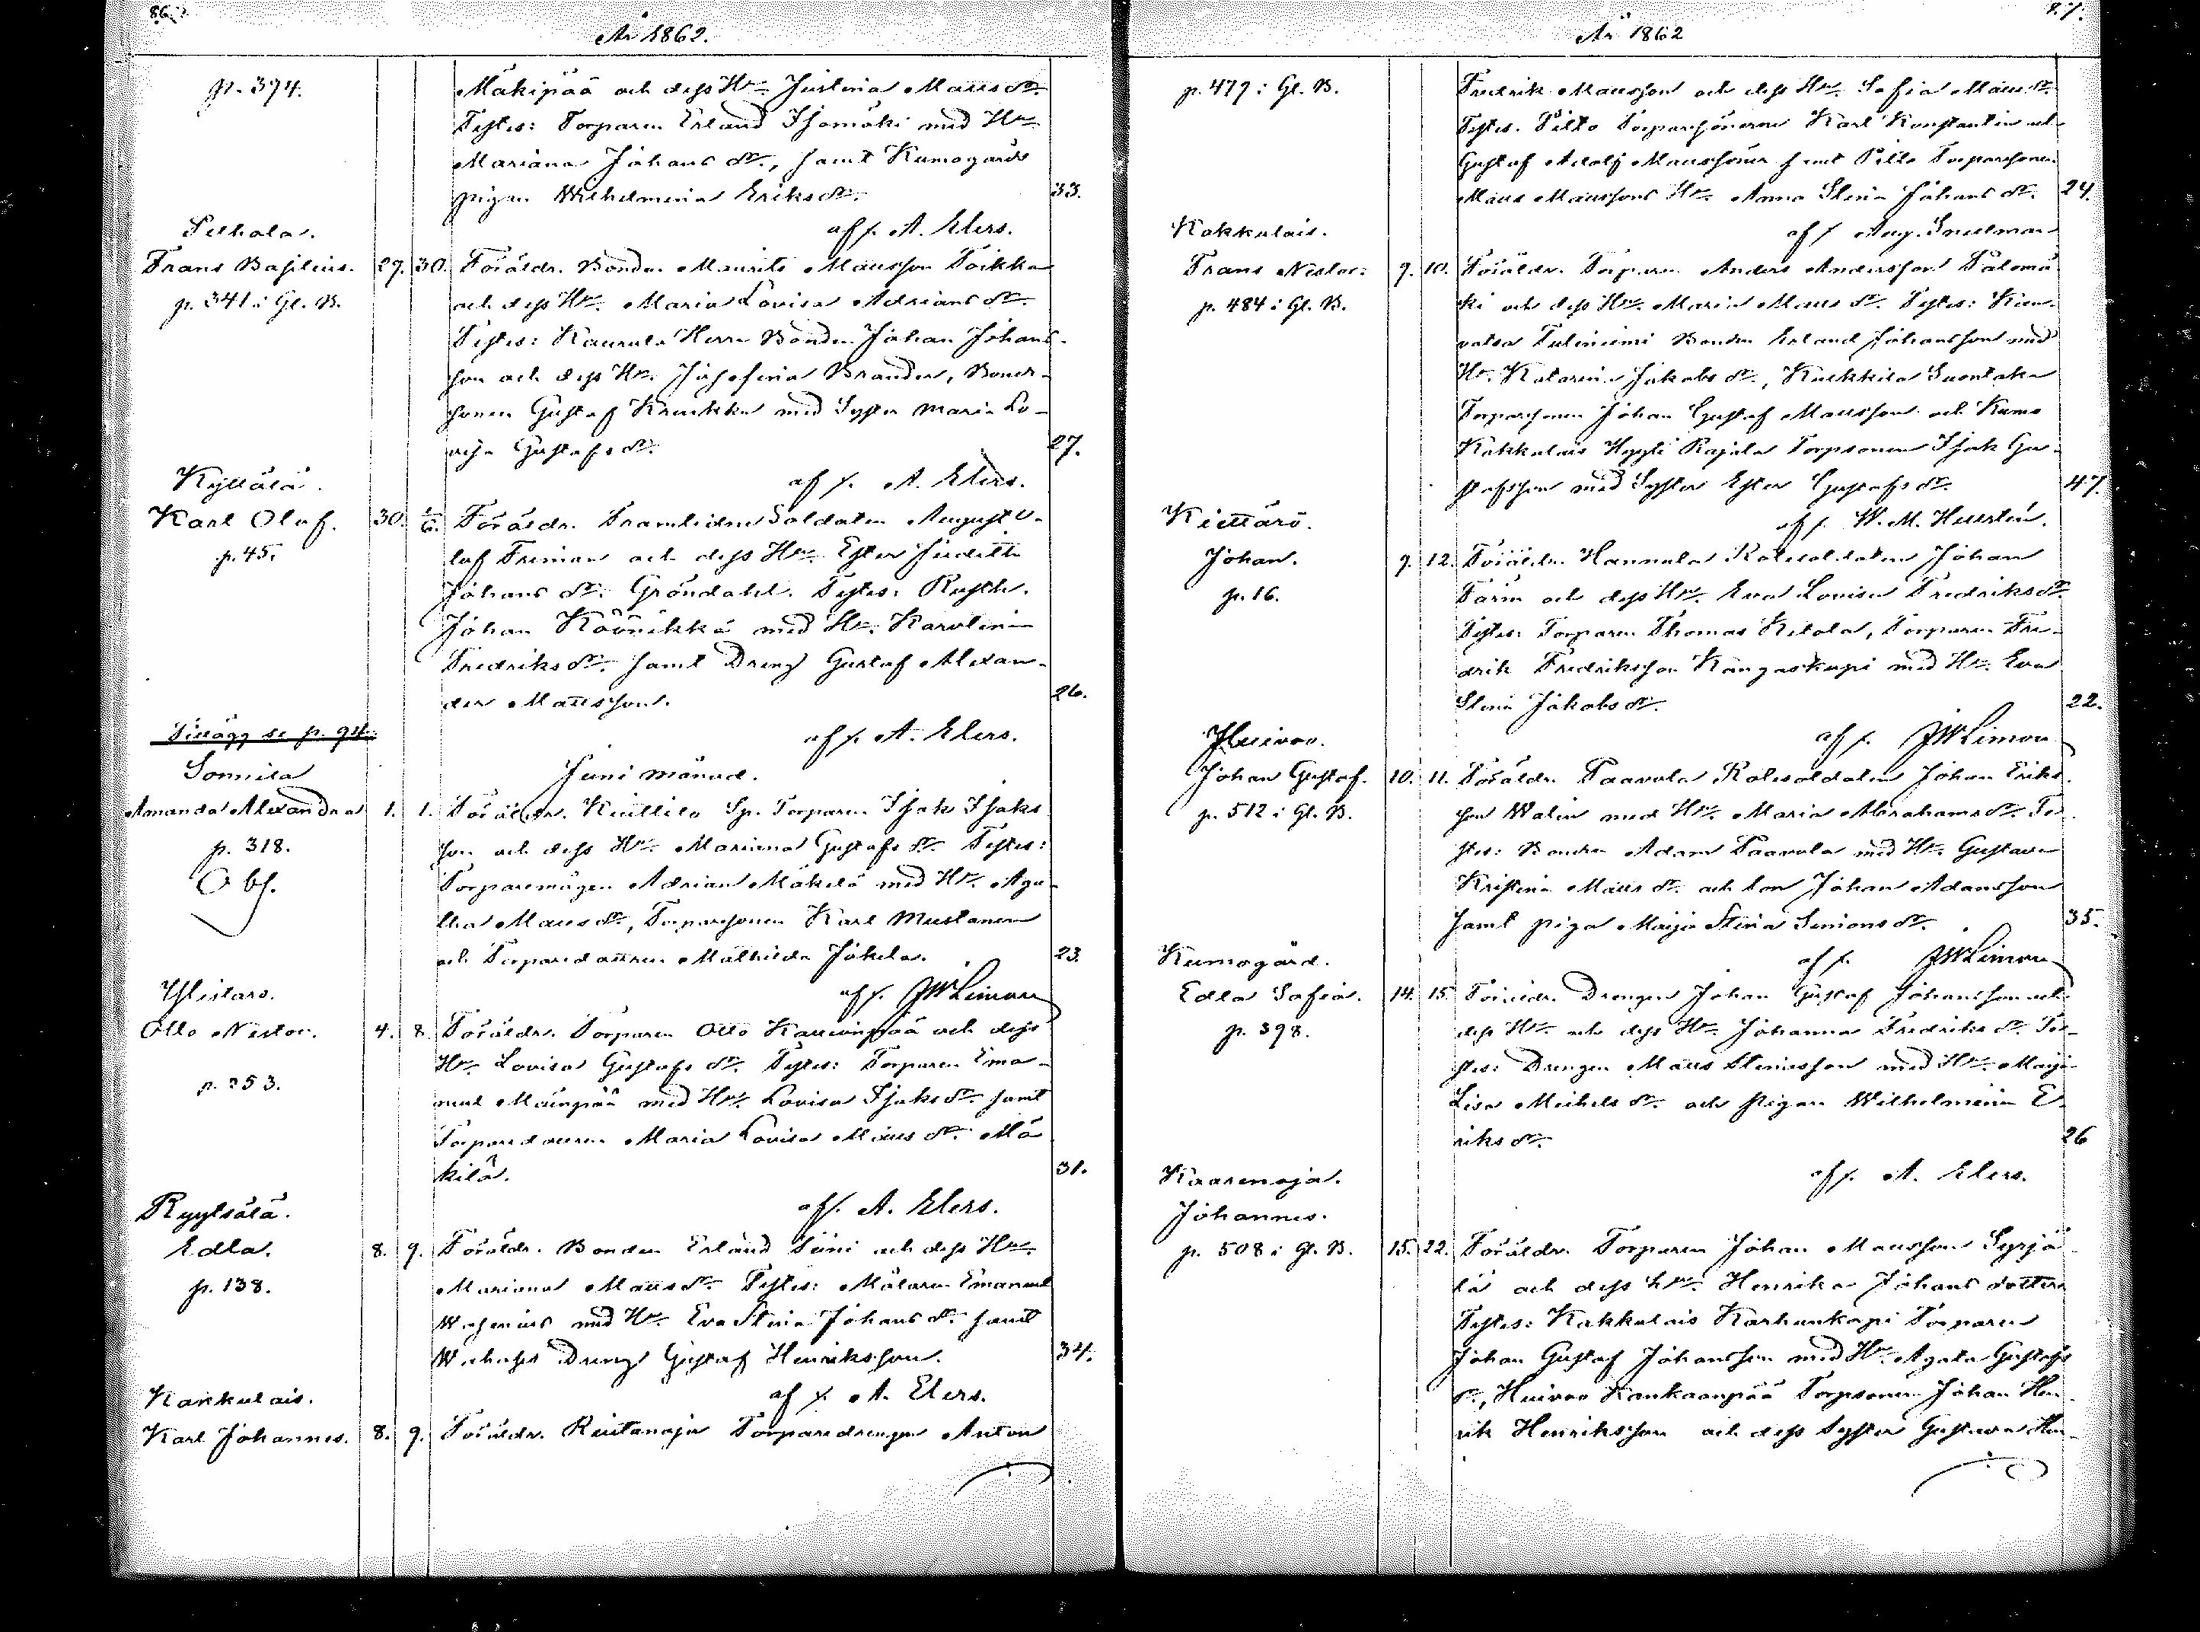 86.
År 1862.
p. 394.
Mäkipää och dess Hu. Justina Matts dr.
Testes: Torparen Erland Isomäki med Hu.
Mariana Johans dr., samt Kumogårds
pigan Wilhelmina Eriks dr. 33.
af f. A. Elers.
Frans Basilius. 27. 30. Föräldr. Bonden Maurits Mattsson Toikka
p. 341 i Gl. B. och dess Hu. Maria Lovisa Adrians dr.
Testes: Kaurula Herra Bonden Johan Johans-
son och dess Hu. Josefina Brander, Bond-
sonen Gustaf Krenkka med Syster Maria Lo-
visa Gustafs dr. 27.
Kyttälä. af f. A. Elers.
Karl Olof. 30. 1/6. Föräldr. Framlidne Soldaten August O-
p. 45. lof Friman och dess Hu. Ester Juditta
Johans dr. Gröndahl. Testes: Rusth.
Johan Köönikkä med Hu. Karolina
Fredriks dr. samt Dreng Gustaf Alexan-
der Mattsson. 26.
Tillägg se p. 94. af f. A. Elers.
Sonnila Juni månad.
Amanda Alexandra 1. 1. Föräldr. Sp. Torparen Isak Isaks
p. 318. son och dess Hu. Mariana Gustafs dr. Testes:
Obs. Torparemågen Adrian Mäkelä med Hu. Aga-
tha Matts dr., Torparsonen Karl Mustanen
och Torparedottren Mathilda Jokela. 23.
Ylistaro. af f. JW Limon
Otto Nestor. 4. 8. Föräldr. Torparen Otto och dess
Hu. Lovisa Gustafs dr. Testes: Torparen Ema-
p. 353. nuel Mäenpää med Hu. Lovisa Isaks dr. samt
Torparedottren Maria Lovisa Matts dr. Mä-
kilä. 31.
Ryytsälä. af f. A. Elers.
Edla. 8. 9. Föräldr. Bonden Erland Säni och dess Hu.
p. 138. Mariana Matts dr. Testes: Målaren Emanuel
Wahenius med Hu. Eva Stina Johans dr. samt
Dreng Gustaf Henriksson. 34.
Kakkulais. af f. A. Elers.
Karl Johannes. 8. 9. Föräldr. Rintanoja Torparedrengen Anton
87.
År 1862
p. 479 i Gl. B. Fredrik Mattsson och dess Hu. Sofia Matts dr.
Testes. Pitto Torparsönerne Karl Konstantin och
Gustaf Adolf Mattssöner samt Pitto Torparsonen
Matts Mattssons Hu. Anna Stina Johans dr. 24.
Kakkulais. af f. Aug. Snellman
Frans Nestor. 9. 10. Föräldr. Torparen Anders Andersson Palomä-
p. 484 i Gl. B. ki och dess Hu. Maria Matts dr. Testes: Kiu-
valsa Tuliniemi Bonden Erland Johansson med
Hu. Katarina Jakobs dr., Kuckkila Suontaka
Torparsonen Johan Gustaf Mattsson och Kumo
Kakkulais Hyyti Rajala Torpsonen Isak Gu-
stafsson med Syster Ester Gustafs dr. 47.
Kiettärö. af f. W. M. Hellstén.
Johan. 9. 12. Föräldr. Hannula Rotesoldaten Johan
p. 16. Farm och dess Hu. Eva Lovisa Fredriks dr.
Testes: Torparen Thomas Ketola, Torparen Fre-
drik Fredriksson Kangaskapi med Hu. Eva
Stina Jakobs dr. 22.
Huivoo. af f. JW Limon
Johan Gustaf. 10. 11. Föräldr. Paavola Rotesoldaten Johan Eriks
p. 512 i Gl. B. son Walin med Hu. Maria Abrahams dr. Te-
stes: Bonden Adam Paavola med Hu. Gustava
Kristina Matts dr. och son Johan Adamsson
samt piga Maja Stina Simons dr. 35.
Kumogård. af f. JW Limon
Edla Sofia. 14. 15. Föräldr. Drengen Johan Gustaf Johansson och
p. 398. dess Hu. och dess Hu. Johanna Fredriks dr. Te-
stes: Drengen Matts Stenisson med Hu. Maja
Lisa Mickels dr. och pigan Wilhelmina E-
riks dr. 26
Kaarenoja. af f. A. Elers.
Johannes.
p. 508 i Gl. B. 15. 22. Föräldr. Torparen Johan Mattsson Syrjä-
lä och dess hu. Henrika Johans dotter.
Testes: Kakkulais Karhunkapi Torparen
Johan Gustaf Johansson med Hu. Agata Gustafs
dr., Huivoo Kankaanpää Torpsonen Johan Hen-
rik Henriksson och dess Syster Gustava Hen-